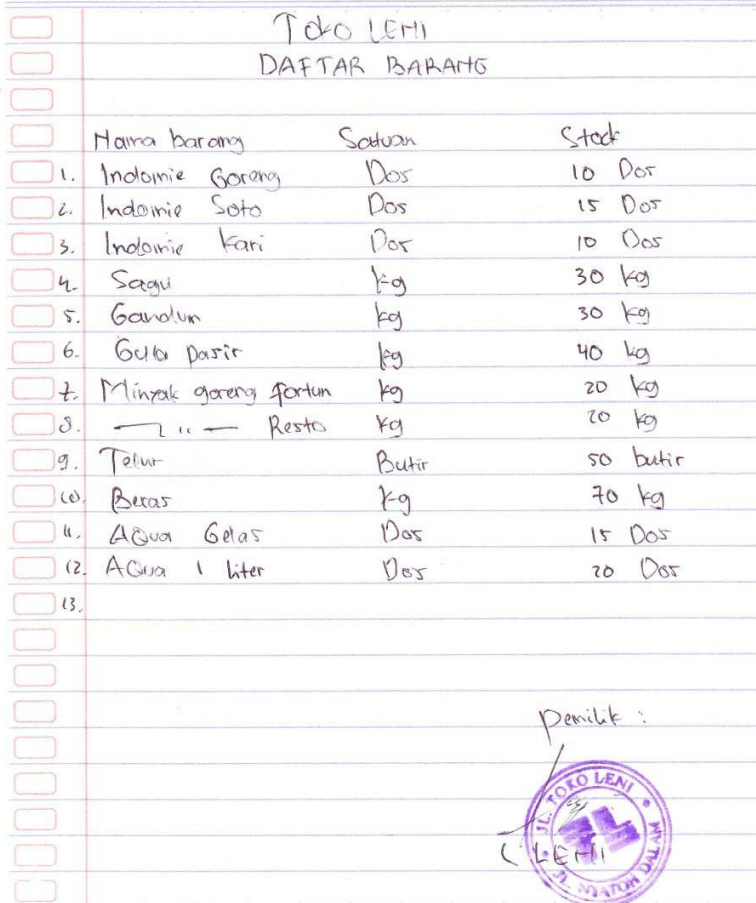 Toko LENI
DAFTAR BARANG
Nama barang Satuan Stock
1. Indomie Goreng Dos 10 Dos
2. Indomie Soto Dos 15 Dos
3. Indomie Kari Dos 10 Dos
4. Sagu kg 30 kg
5. Gandum kg 30 kg
6. Gula pasir kg 40 kg
7. Minyak goreng fortun kg 20 kg
8. — " — Resto kg 20 kg
9. Telur Butir 50 butir
10. Beras kg 70 kg
11. AQua Gelas Dos 15 Dos
12. AQua 1 liter Dos 20 Dos
13.
pemilik :
TOKO LENI
( LENI